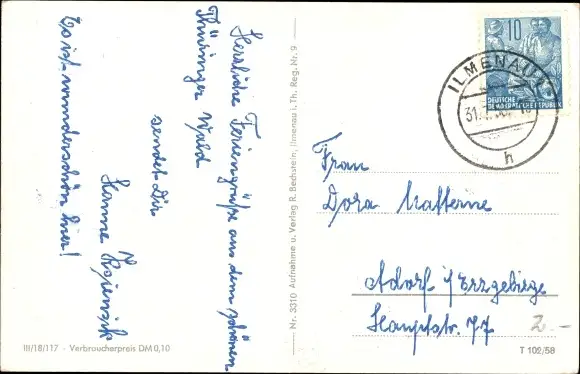 Herzliche Feriengrüße aus dem schönen
Thüringer Wald
sendet Dir
Hanne
Es ist wunderschön hier!
III/18/117 - Verbraucherpreis DM 0,10
Nr. 3310 Aufnahme u. Verlag R. Bechstein, Ilmenau i. Th. Reg. Nr. 9
10
DEUTSCHE
DEMOKRATISCHE REPUBLIK
ILMENAU 1
31.7.
h
Frau
Dora Matterne
Adorf i/Erzgebirge
Hauptstr. 77
2.-
T 102/58